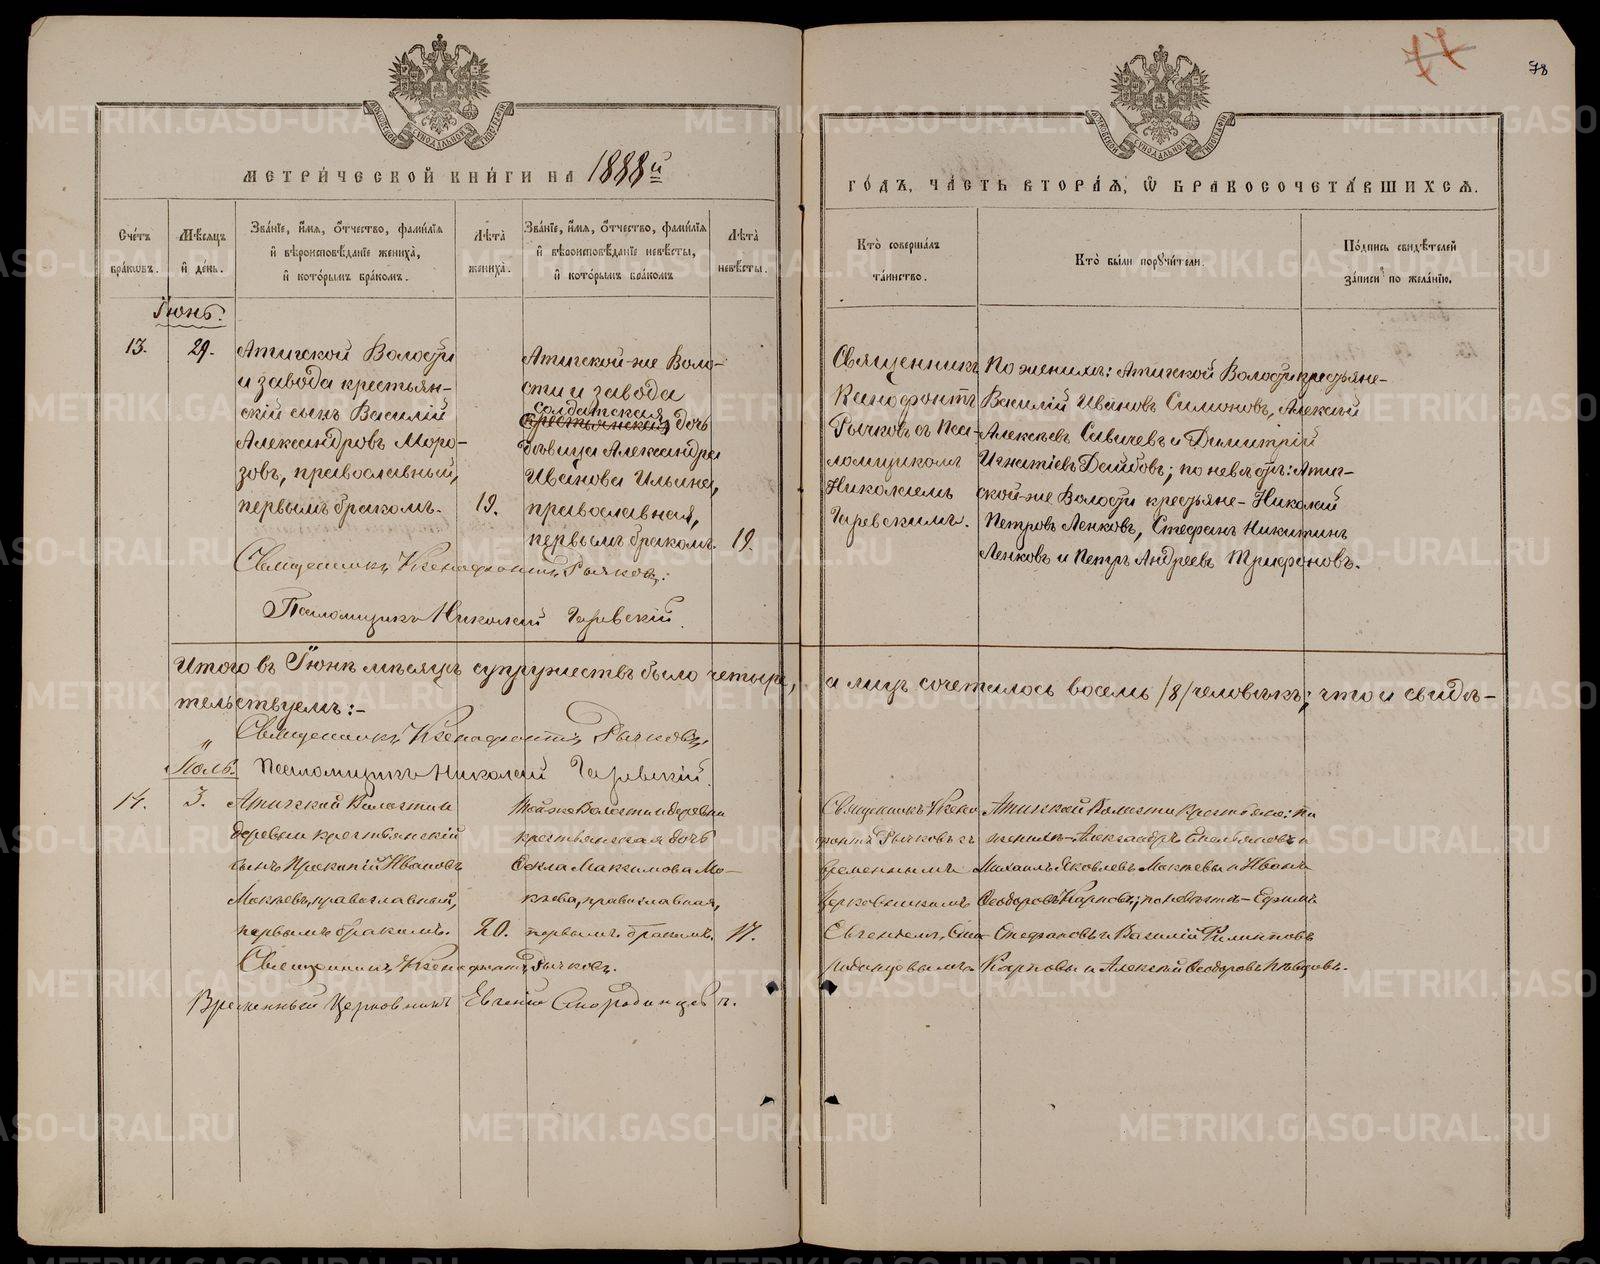 77
78
МОСКОВСКОЙ СѴНОДАЛЬНОЙ ТИПОГРАФІИ
МОСКОВСКОЙ СѴНОДАЛЬНОЙ ТИПОГРАФІИ
МЕТРИ́ЧЕСКОЙ КНИ́ГИ НА 1888й
ГО́ДЪ, ЧА́СТЬ ВТОРА́Я, Ѡ҆ БРАКОСОЧЕТА́ВШИХСЯ.
Сче́тъ бра́кѡвъ.
Мѣ́сяцъ и҆ де́нь.
Зва́нїе, и҆́мя, ѻ҆́тчество, фами́лїя
и҆ вѣроисповѣ́данїе жениха̀,
и҆ кото́рымъ бра́комъ.
Лѣта̀ жениха̀.
Зва́нїе, и҆́мя, ѻ҆́тчество, фами́лїя
и҆ вѣроисповѣ́данїе невѣ́сты,
и҆ кото́рымъ бра́комъ
Лѣта̀ невѣ́сты.
Кто̀ соверша́лъ
та́инство.
Кто̀ бы́ли порꙋчи́тели.
По́дпись свидѣ́телей
за́писи по жела́нїю.
Іюнь.
13.
29.
Атигской Волости
и завода крестьян-
скій сынъ Василій
Александровъ Моро-
зовъ, православный,
первымъ бракомъ.
19.
Атигской-же Воло-
сти и завода
солдатская
крестьянская дочь
дѣвица Александра
Иванова Ильина,
православная,
первымъ бракомъ.
19.
Священникъ
Ксенофонтъ
Рычковъ съ Пса-
ломщикомъ
Николаемъ
Гаревскимъ.
По женихѣ: Атигской Волости крестьяне-
Василій Ивановъ Симоновъ, Алексѣй
Алексѣевъ Савичевъ и Димитрій
Игнатіевъ; по невѣстѣ: Атиг-
ской-же Волости крестьяне- Николай
Петровъ Ленковъ, Стефанъ Никитинъ
Ленковъ и Петръ Андреевъ Трифоновъ.
Священникъ Ксенофонтъ Рычковъ.
Псаломщикъ Николай Гаревскій.
Итого въ Іюнѣ мѣсяцѣ супружествъ было четыре,
а лицъ сочеталось восемь /8/ человѣкъ; что и свидѣ-
тельствуемъ:-
Священникъ Ксенофонтъ Рычковъ.
Іюль.
Псаломщикъ Николай Гаревскій.
14.
3.
Атигской Волости
деревни крестьянскій
сынъ Прокопій Ивановъ
Мокѣевъ, православный,
первымъ бракомъ.
20.
Той же Волости и деревни
крестьянская дочь
Ѳекла Максимова Мо-
кѣева, православная,
первымъ бракомъ.
17.
Священникъ Ксено-
фонтъ Рычковъ съ
временнымъ
Церковникомъ
Евгеніемъ Смо-
родинцевымъ.
Атигской Волости Крестьяне: по
женихѣ- Александръ Емельяновъ и
Михаилъ Яковлевъ Мокѣевы и Иванъ
Ѳеодоровъ Карповъ; по невѣстѣ- Ефимъ
Стефановъ и Василій Филиповъ
Карповы и Алексѣй Ѳеодоровъ
Священникъ Ксенофонтъ Рычковъ.
Временный Церковникъ Евгеній Смородинцевъ.
METRIKI.GASO-URAL.RU